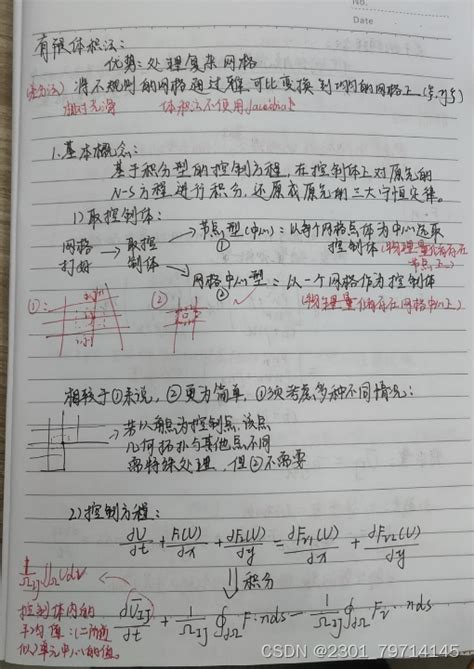 No.
Date
有限体积法：
优势：处理复杂网格
(差分法) 将不规则的网格通过雅可比变换到均匀的网格上(ξ,η)
相对光滑 体积法不使用Jacobia
1.基本概念：
基于积分型的控制方程，在控制体上对原先的
N-S方程进行积分，还原成原先的三大守恒定律。
1)取控制体：
节点型(中心)：以每个网格点体为中心选取
① 控制体(物理量储存在
节点上)
网格 → 取控
打好 制体
网格中心型：以一个网格作为控制体
② (物理量储存在网格中心上)
①： ②
相较于①来说，②更为简单，①须考虑多种不同情况：
若以角点为控制点，该点
几何拓扑与其他点不同
需特殊处理，但②不需要
2)控制方程：
dU/dt + dF1(U)/dx + dF2(U)/dy = dFv1(U)/dx + dFv2(U)/dy
⇓积分
1/ΩIJ ∬Ω U dv
控制体内的
平均值：(二阶近
似)单元中心的值。
dUIJ/dt + 1/ΩIJ ∮∂Ω F·nds − 1/ΩIJ ∮∂Ω Fv·nds
CSDN @2301_79714145